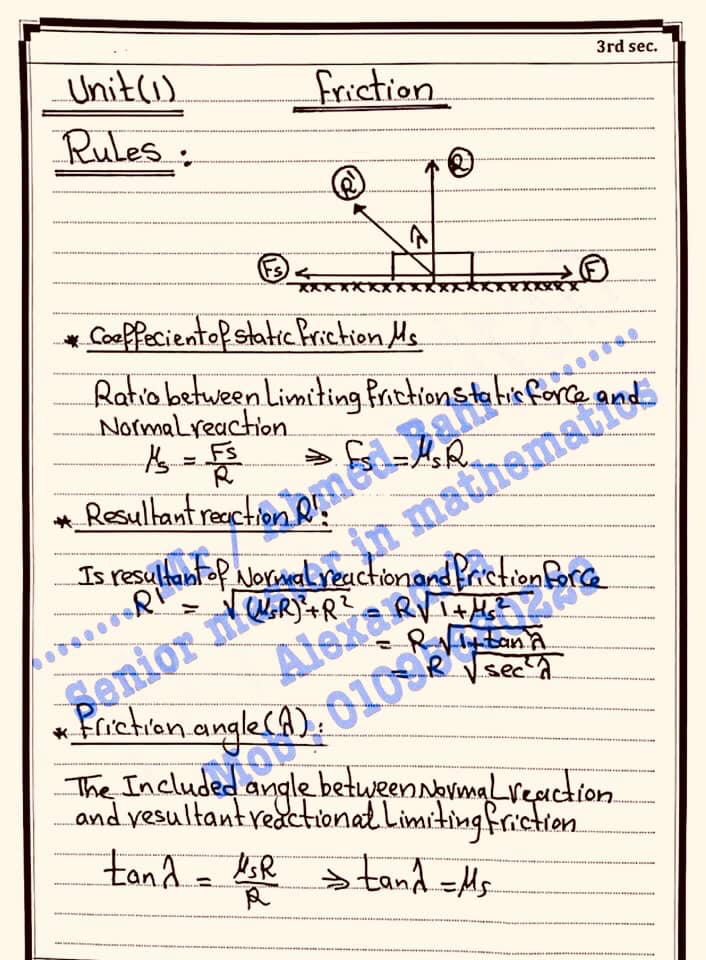 3rd sec.
Unit(1) Friction
Rules :
R' R
λ
Fs F
* Coeffecient of static friction μs
Ratio between Limiting friction static force and
Normal reaction
μs = Fs/R ⇒ Fs = μsR
* Resultant reaction R':
Is resultant of Normal reaction and friction force
R' = √(μsR)²+R² = R√1+μs²
= R√1+tan²λ
= R √sec²λ
* Friction angle(λ):
The Included angle between Normal reaction
and resultant reaction at Limiting friction
tanλ = μsR/R ⇒ tanλ = μs
Mr / Ahmed
Senior master in mathematics
Alexandria
Mob :